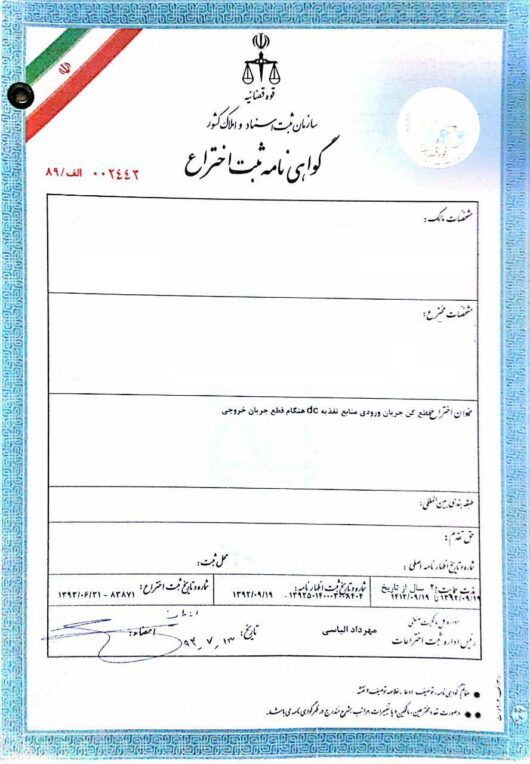 قوه قضائیه
سازمان ثبت اسناد و املاک کشور
گواهی نامه ثبت اختراع
۰۰۲۴۴۲ الف/۸۹
مشخصات مالک:
مشخصات مخترع:
عنوان اختراع: قطع کن جریان ورودی منابع تغذیه dc هنگام قطع جریان خروجی
طبقه بندی بین المللی:
حق تقدم:
شماره و تاریخ اظهارنامه اصلی: محل ثبت:
مدت حمایت: ۲۰ سال از تاریخ شماره و تاریخ ثبت اظهارنامه: شماره و تاریخ ثبت اختراع:
۱۳۹۲/۰۹/۱۹ تا ۱۴۱۲/۰۹/۱۹ ۱۳۹۲/۰۹/۱۹ ۸۳۸۷۱ - ۱۳۹۳/۰۶/۳۱
اداره کل مالکیت صنعتی
رئیس اداره ثبت اختراعات مهرداد الیاسی تاریخ: ۹۳,۷,۱۳ امضاء:
تمام گواهی نامه، توصیف، ادعا، خلاصه توصیف و نقشه